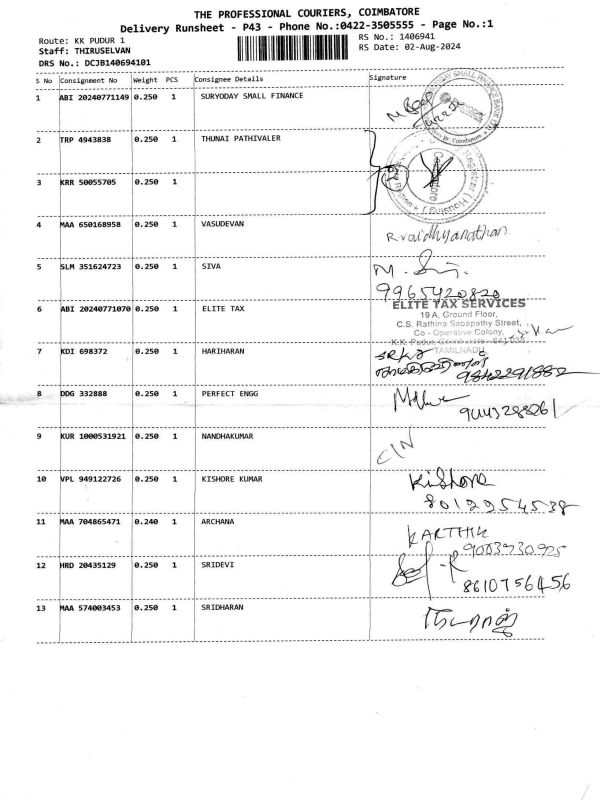 THE PROFESSIONAL COURIERS, COIMBATORE
Delivery Runsheet - P43 - Phone No.:0422-3505555 - Page No.:1
Route: KK PUDUR 1
RS No.: 1406941
Staff: THIRUSELVAN
RS Date: 02-Aug-2024
DRS No.: DCJB140694101
S No Consignment No Weight PCS Consignee Details Signature
1 ABI 20240771149 0.250 1 SURYODAY SMALL FINANCE
2 TRP 4943838 0.250 1 THUNAI PATHIVALER
3 KRR 50055705 0.250 1
4 MAA 650168958 0.250 1 VASUDEVAN
R vaidhyanathan
5 SLM 351624723 0.250 1 SIVA
9965420820
6 ABI 20240771070 0.250 1 ELITE TAX
ELITE TAX SERVICES
19 A, Ground Floor,
C.S. Rathina Sabapathy Street,
Co - Operative Colony,
TAMILNADU
7 KDI 698372 0.250 1 HARIHARAN
9842291882
8 DDG 332888 0.250 1 PERFECT ENGG
9443288261
9 KUR 1000531921 0.250 1 NANDHAKUMAR
10 VPL 949122726 0.250 1 KISHORE KUMAR
Kishore
8012254538
11 MAA 704865471 0.240 1 ARCHANA
KARTHIK
9003930925
12 HRD 20435129 0.250 1 SRIDEVI
8610756456
13 MAA 574003453 0.250 1 SRIDHARAN